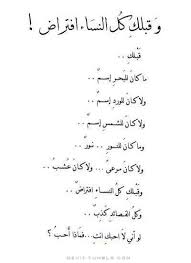 وَ قبلكِ كُل النسَاء افتراض !
قَبْلكِ ..
ماكانَ للبَحرِ إسمٌ ..
ولا كانَ للوردِ إسمٌ ..
ولا كانَ للشمسِ إسمٌ ..
وما كانَ للنور .. نورٌ ..
ولا كانَ مرعىً .. ولا كانَ عُشبٌ ..
وقبلكِ كلُ النسَاءِ افتراضٌ ..
وكل القصائدِ كَذِبٌ ..
لو أنني لا احبك انتِ .. فمَاذا أحِبُ ؟